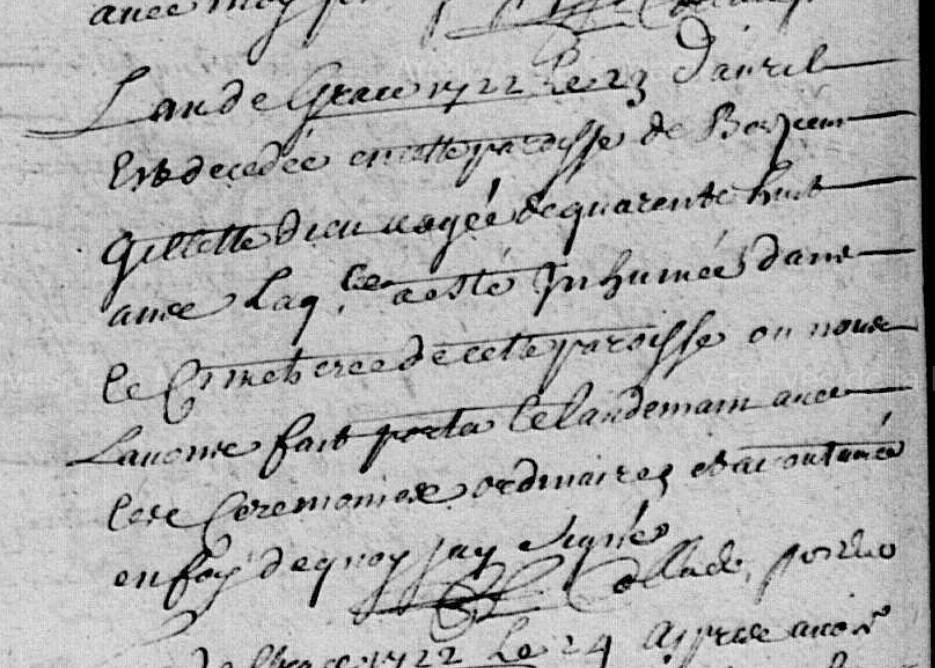 auec moy
Lan de Grace 1722 Le 23 Dauril
Est decedée en cette paroisse de
Gillette dieu aagée de quarente huit
ance Laq.lle a esté Inhumée dans
le Cimetierre de cette paroisse ou nous
Lauons fait porter le landemain auec
les Ceremonies ordinaires et acoutumée
en foy de quoy jay signé
Collade
de Grace 1722 Le 24 Apprés auoir